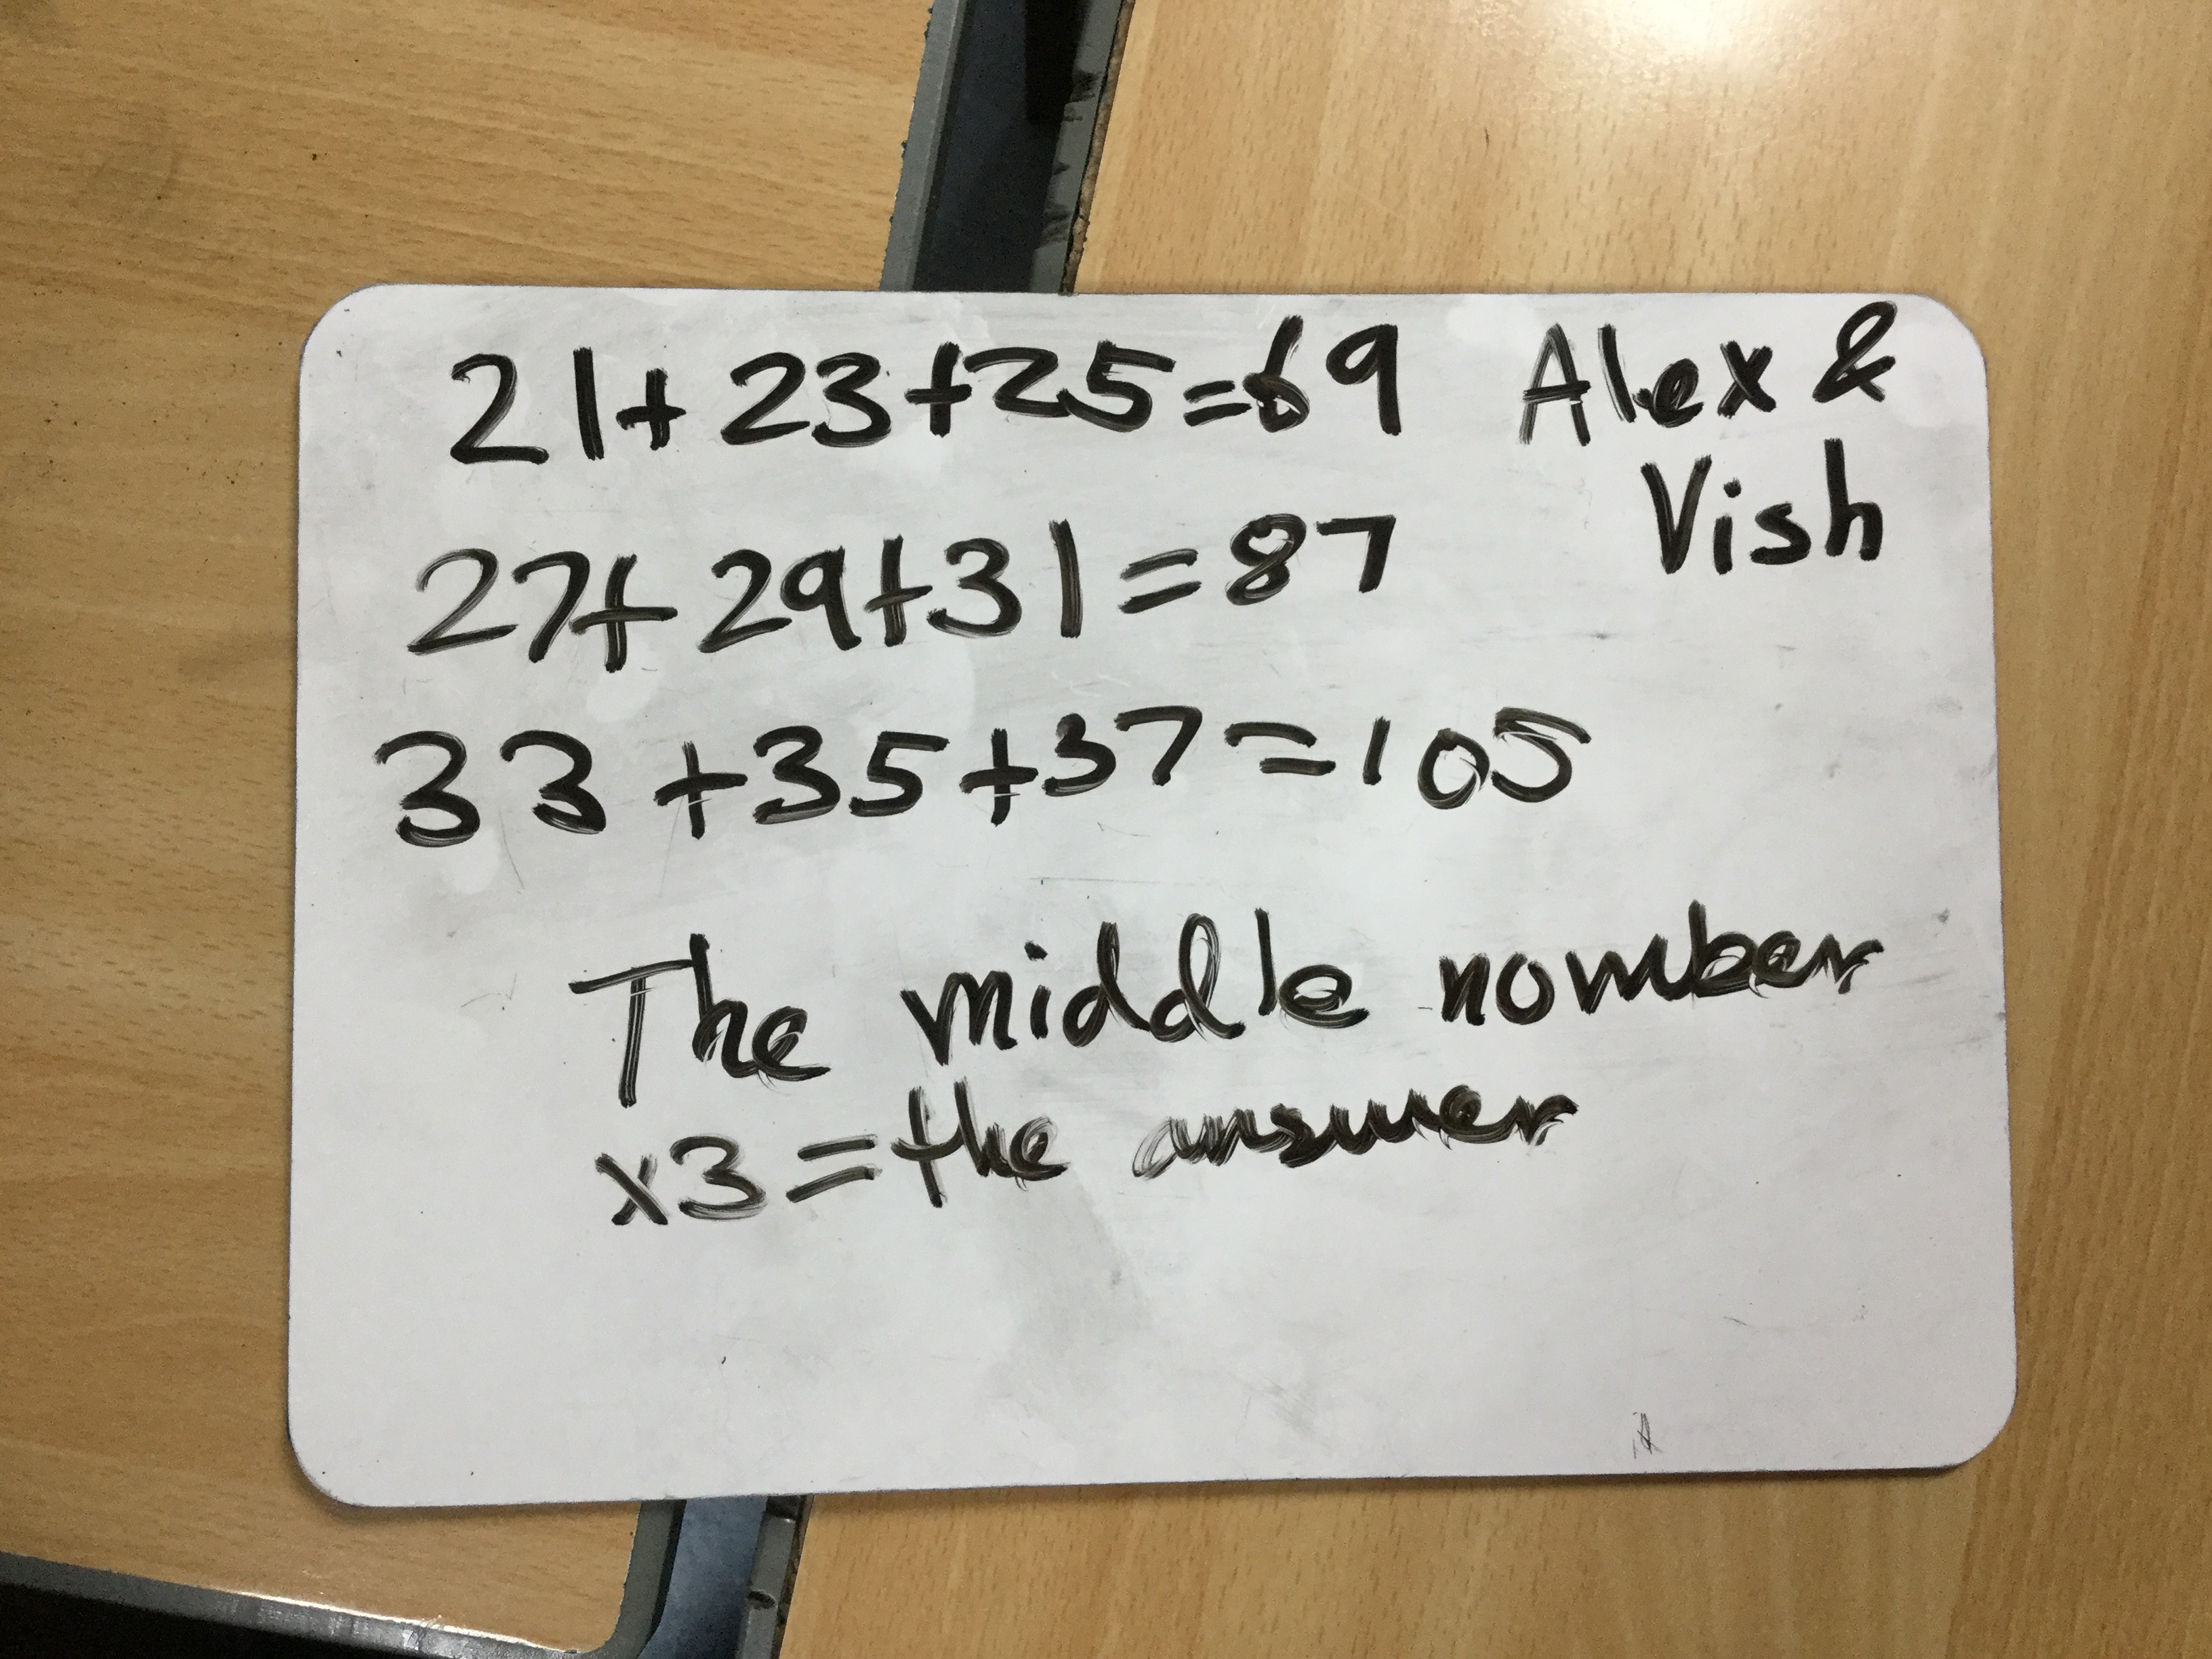 21+23+25=69
Alex &
Vish
27+29+31=87
33+35+37=105
The middle nomber
x3=the answer